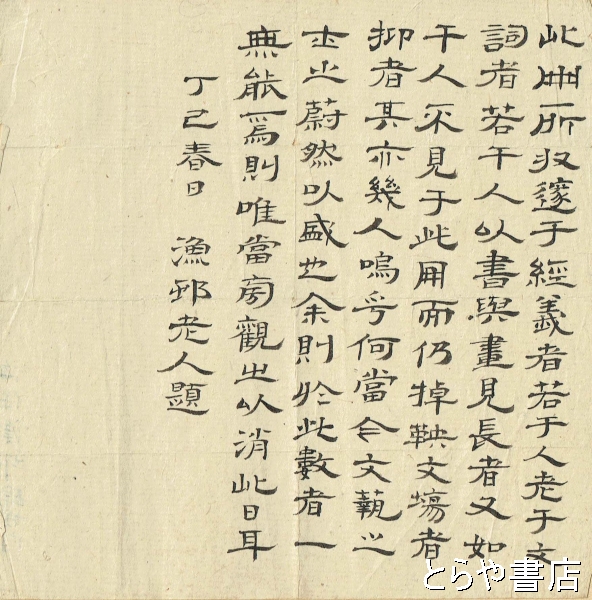 此冊所收邃于經義者若干人老于文
詞者若干人以書與畫見長者又如
干人不見于此冊而仍掉鞅文場者
抑者其亦幾人嗚乎何當今文藝之
士之蔚然以盛也余則於此數者一
無能焉則唯當旁觀之以消此日耳
丁巳春日 漁邨老人題
とらや書店